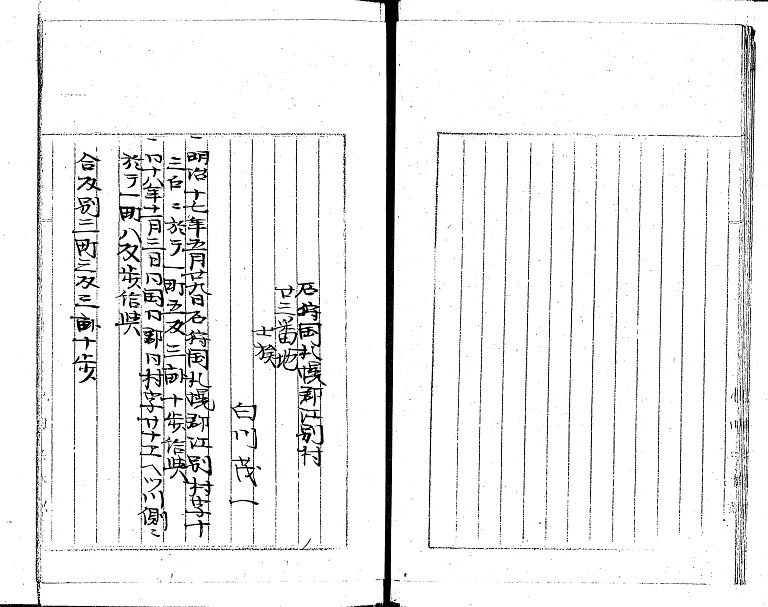 石狩国札幌郡江別村
廿三番地
士族
白川茂一
一明治十七年五月廿九日石狩国札幌郡江別村字十
三白ニ於テ一町五反三畝十歩給与
一同十八年十一月三日同国同郡同村字ヤナエヘツ川側ニ
於テ一町八反歩給与
合反別三町三反三畝十歩